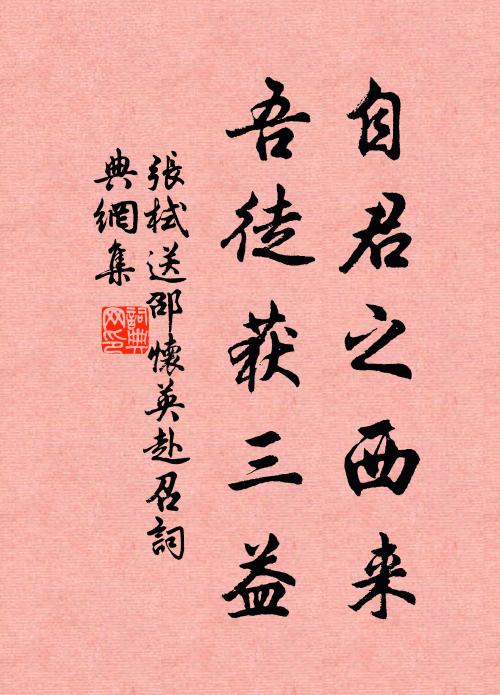 自君之西来
吾徒获三益
張栻送邵懷英赴召詞
典網集
詞典
网印